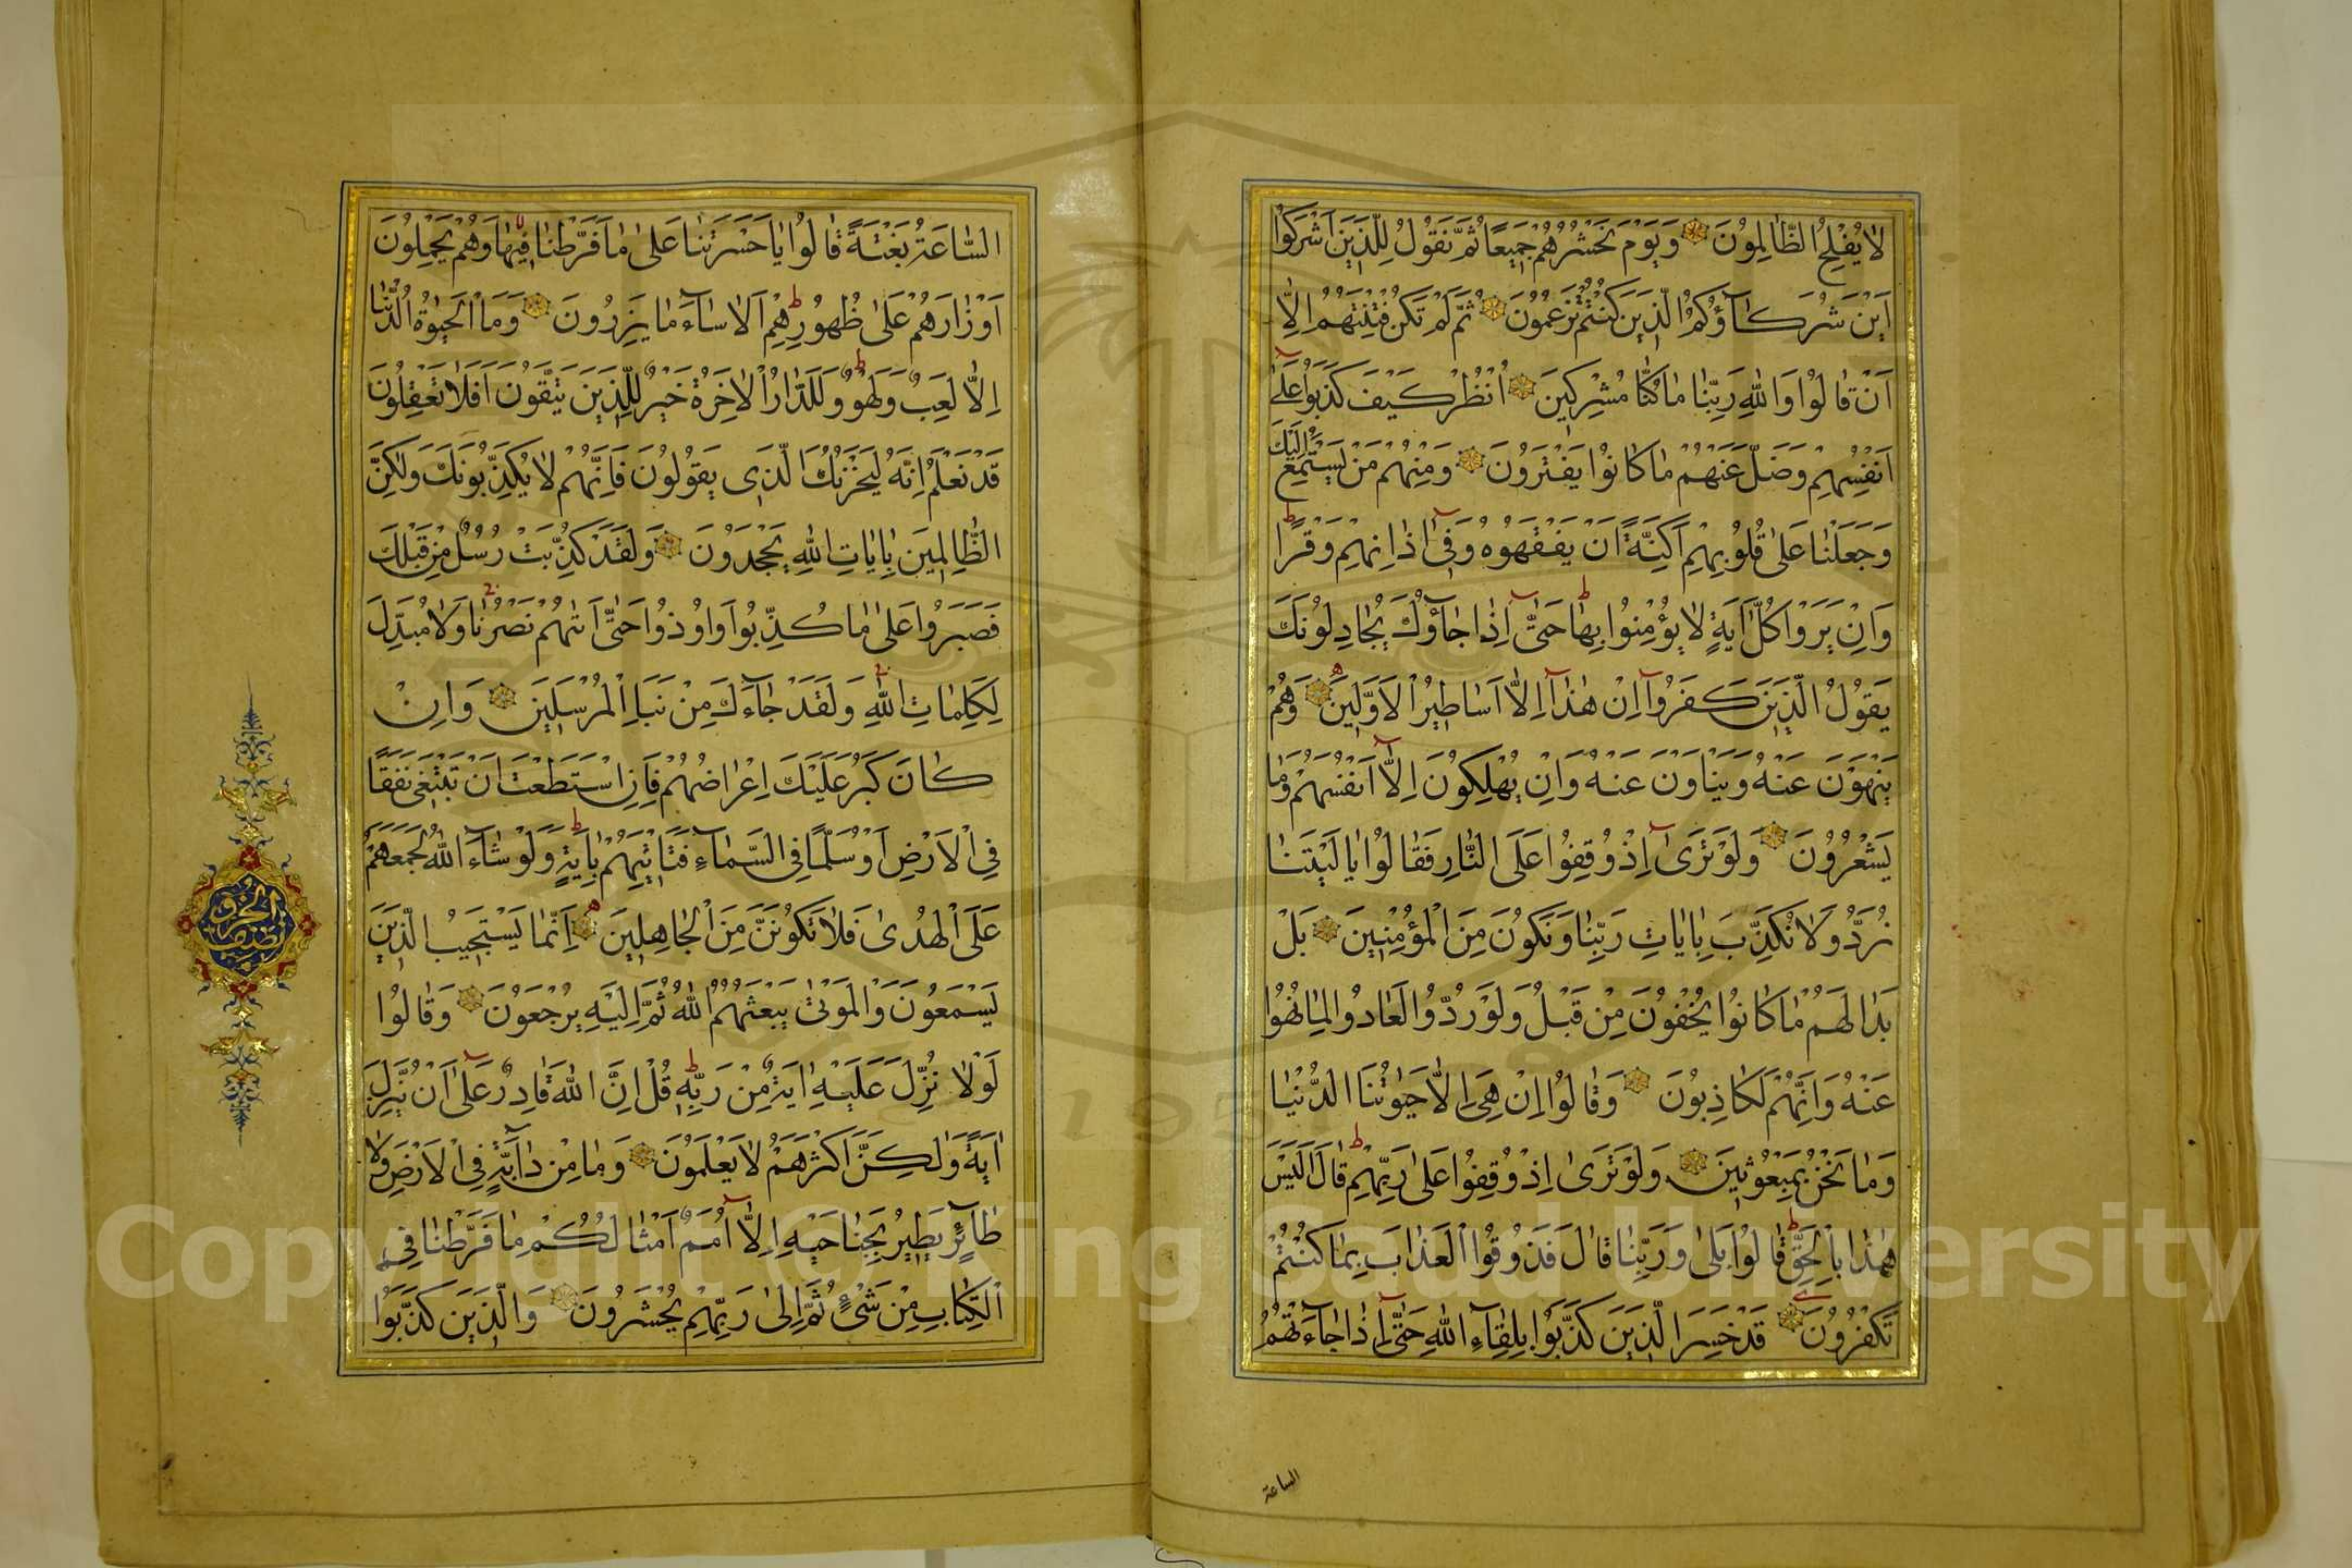 لَا يُفْلِحُ الظَّالِمُونَ وَيَوْمَ نَحْشُرُهُمْ جَمِيعًا ثُمَّ نَقُولُ لِلَّذِينَ أَشْرَكُوا
أَيْنَ شُرَكَآؤُكُمُ الَّذِينَ كُنْتُمْ تَزْعُمُونَ ثُمَّ لَمْ تَكُنْ فِتْنَتُهُمْ اِلَّا
اَنْ قَالُوا وَاللهِ رَبِّنَا مَا كُنَّا مُشْرِكِينَ اُنْظُرْ كَيْفَ كَذَبُوا عَلٰٓى
اَنْفُسِهِمْ وَضَلَّ عَنْهُمْ مَا كَانُوا يَفْتَرُونَ وَمِنْهُمْ مَنْ يَسْتَمِعُ اِلَيْكَ
وَجَعَلْنَا عَلٰى قُلُوبِهِمْ اَكِنَّةً اَنْ يَفْقَهُوهُ وَفِٓى اٰذَانِهِمْ وَقْرًا
وَاِنْ يَرَوْا كُلَّ اٰيَةٍ لَا يُؤْمِنُوا بِهَا حَتّٰٓى اِذَا جَآؤُكَ يُجَادِلُونَكَ
يَقُولُ الَّذِينَ كَفَرُوٓا اِنْ هٰذَٓا اِلَّٓا اَسَاطِيرُ الْاَوَّلِينَ وَهُمْ
يَنْهَوْنَ عَنْهُ وَيَنْاَوْنَ عَنْهُ وَاِنْ يُهْلِكُونَ اِلَّٓا اَنْفُسَهُمْ وَمَا
يَشْعُرُونَ وَلَوْ تَرٰٓى اِذْ وُقِفُوا عَلَى النَّارِ فَقَالُوا يَا لَيْتَنَا
نُرَدُّ وَلَا نُكَذِّبَ بِاٰيَاتِ رَبِّنَا وَنَكُونَ مِنَ الْمُؤْمِنِينَ بَلْ
بَدَا لَهُمْ مَا كَانُوا يُخْفُونَ مِنْ قَبْلُ وَلَوْ رُدُّوا لَعَادُوا لِمَا نُهُوا
عَنْهُ وَاِنَّهُمْ لَكَاذِبُونَ وَقَالُوا اِنْ هِىَ اِلَّا حَيٰوتُنَا الدُّنْيَا
وَمَا نَحْنُ بِمَبْعُوثِينَ وَلَوْ تَرٰى اِذْ وُقِفُوا عَلٰى رَبِّهِمْ قَالَ اَلَيْسَ
هٰذَا بِالْحَقِّ قَالُوا بَلٰى وَرَبِّنَا قَالَ فَذُوقُوا الْعَذَابَ بِمَا كُنْتُمْ
تَكْفُرُونَ قَدْ خَسِرَ الَّذِينَ كَذَّبُوا بِلِقَآءِ اللهِ حَتّٰٓى اِذَا جَآءَتْهُمُ
الساعة
السَّاعَةُ بَغْتَةً قَالُوا يَا حَسْرَتَنَا عَلٰى مَا فَرَّطْنَا فِيهَا وَهُمْ يَحْمِلُونَ
اَوْزَارَهُمْ عَلٰى ظُهُورِهِمْ اَلَا سَآءَ مَا يَزِرُونَ وَمَا الْحَيٰوةُ الدُّنْيَا
اِلَّا لَعِبٌ وَلَهْوٌ وَلَلدَّارُ الْاٰخِرَةُ خَيْرٌ لِلَّذِينَ يَتَّقُونَ اَفَلَا تَعْقِلُونَ
قَدْ نَعْلَمُ اِنَّهُ لَيَحْزُنُكَ الَّذِى يَقُولُونَ فَاِنَّهُمْ لَا يُكَذِّبُونَكَ وَلٰكِنَّ
الظَّالِمِينَ بِاٰيَاتِ اللهِ يَجْحَدُونَ وَلَقَدْ كُذِّبَتْ رُسُلٌ مِنْ قَبْلِكَ
فَصَبَرُوا عَلٰى مَا كُذِّبُوا وَاُوذُوا حَتّٰٓى اَتٰيهُمْ نَصْرُنَا وَلَا مُبَدِّلَ
لِكَلِمَاتِ اللهِ وَلَقَدْ جَآءَكَ مِنْ نَبَاِ الْمُرْسَلِينَ وَاِنْ
كَانَ كَبُرَ عَلَيْكَ اِعْرَاضُهُمْ فَاِنِ اسْتَطَعْتَ اَنْ تَبْتَغِىَ نَفَقًا
فِى الْاَرْضِ اَوْ سُلَّمًا فِى السَّمَآءِ فَتَاْتِيَهُمْ بِاٰيَةٍ وَلَوْ شَآءَ اللهُ لَجَمَعَهُمْ
عَلَى الْهُدٰى فَلَا تَكُونَنَّ مِنَ الْجَاهِلِينَ اِنَّمَا يَسْتَجِيبُ الَّذِينَ
يَسْمَعُونَ وَالْمَوْتٰى يَبْعَثُهُمُ اللهُ ثُمَّ اِلَيْهِ يُرْجَعُونَ وَقَالُوا
لَوْلَا نُزِّلَ عَلَيْهِ اٰيَةٌ مِنْ رَبِّهٖ قُلْ اِنَّ اللهَ قَادِرٌ عَلٰٓى اَنْ يُنَزِّلَ
اٰيَةً وَلٰكِنَّ اَكْثَرَهُمْ لَا يَعْلَمُونَ وَمَا مِنْ دَآبَّةٍ فِى الْاَرْضِ وَلَا
طَآئِرٍ يَطِيرُ بِجَنَاحَيْهِ اِلَّٓا اُمَمٌ اَمْثَالُكُمْ مَا فَرَّطْنَا فِى
الْكِتَابِ مِنْ شَىْءٍ ثُمَّ اِلٰى رَبِّهِمْ يُحْشَرُونَ وَالَّذِينَ كَذَّبُوا
Copyright © King Saud University
1957